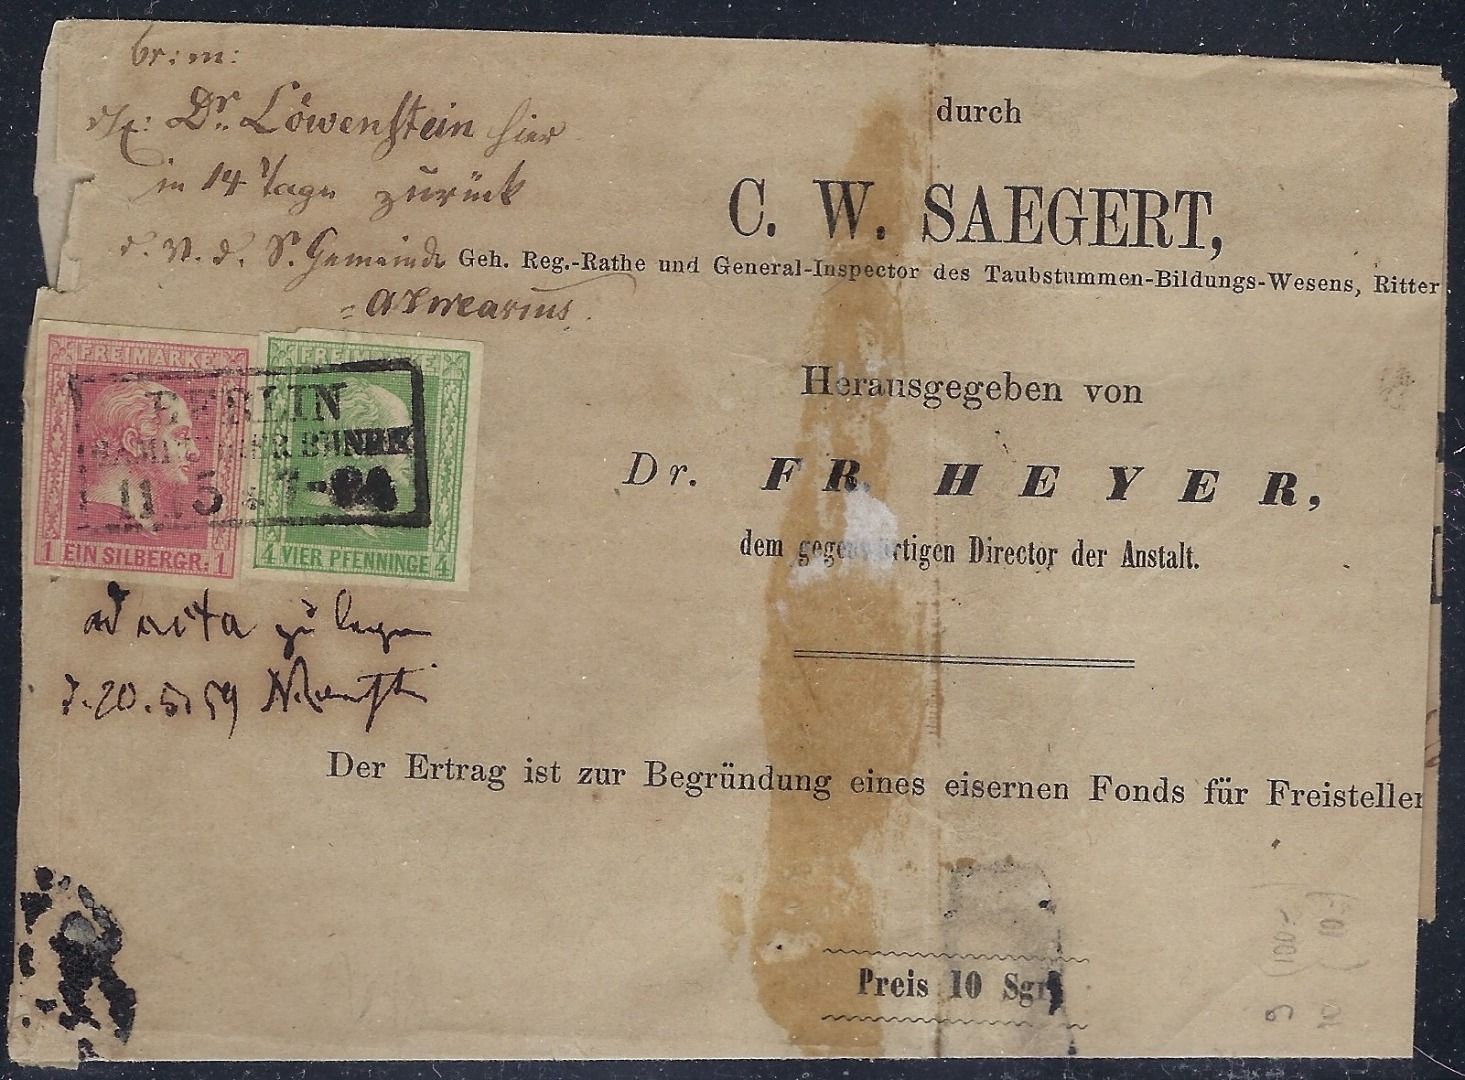 br: m:
Dr. Löwenstein hier
in 14 Tage zurück
d. V. d. S. Gemeinde
durch
C. W. SAEGERT,
Geh. Reg.-Rathe und General-Inspector des Taubstummen-Bildungs-Wesens, Ritter
FREIMARKE
FREIMARKE
BERLIN
11 5 7-8
1 EIN SILBERGR. 1
4 VIER PFENNINGE 4
Herausgegeben von
Dr. FR. HEYER,
dem gegenwärtigen Director der Anstalt.
ad acta zu legen
d. 20. 5. 59
Der Ertrag ist zur Begründung eines eisernen Fonds für Freistellen
Preis 10 Sgr.